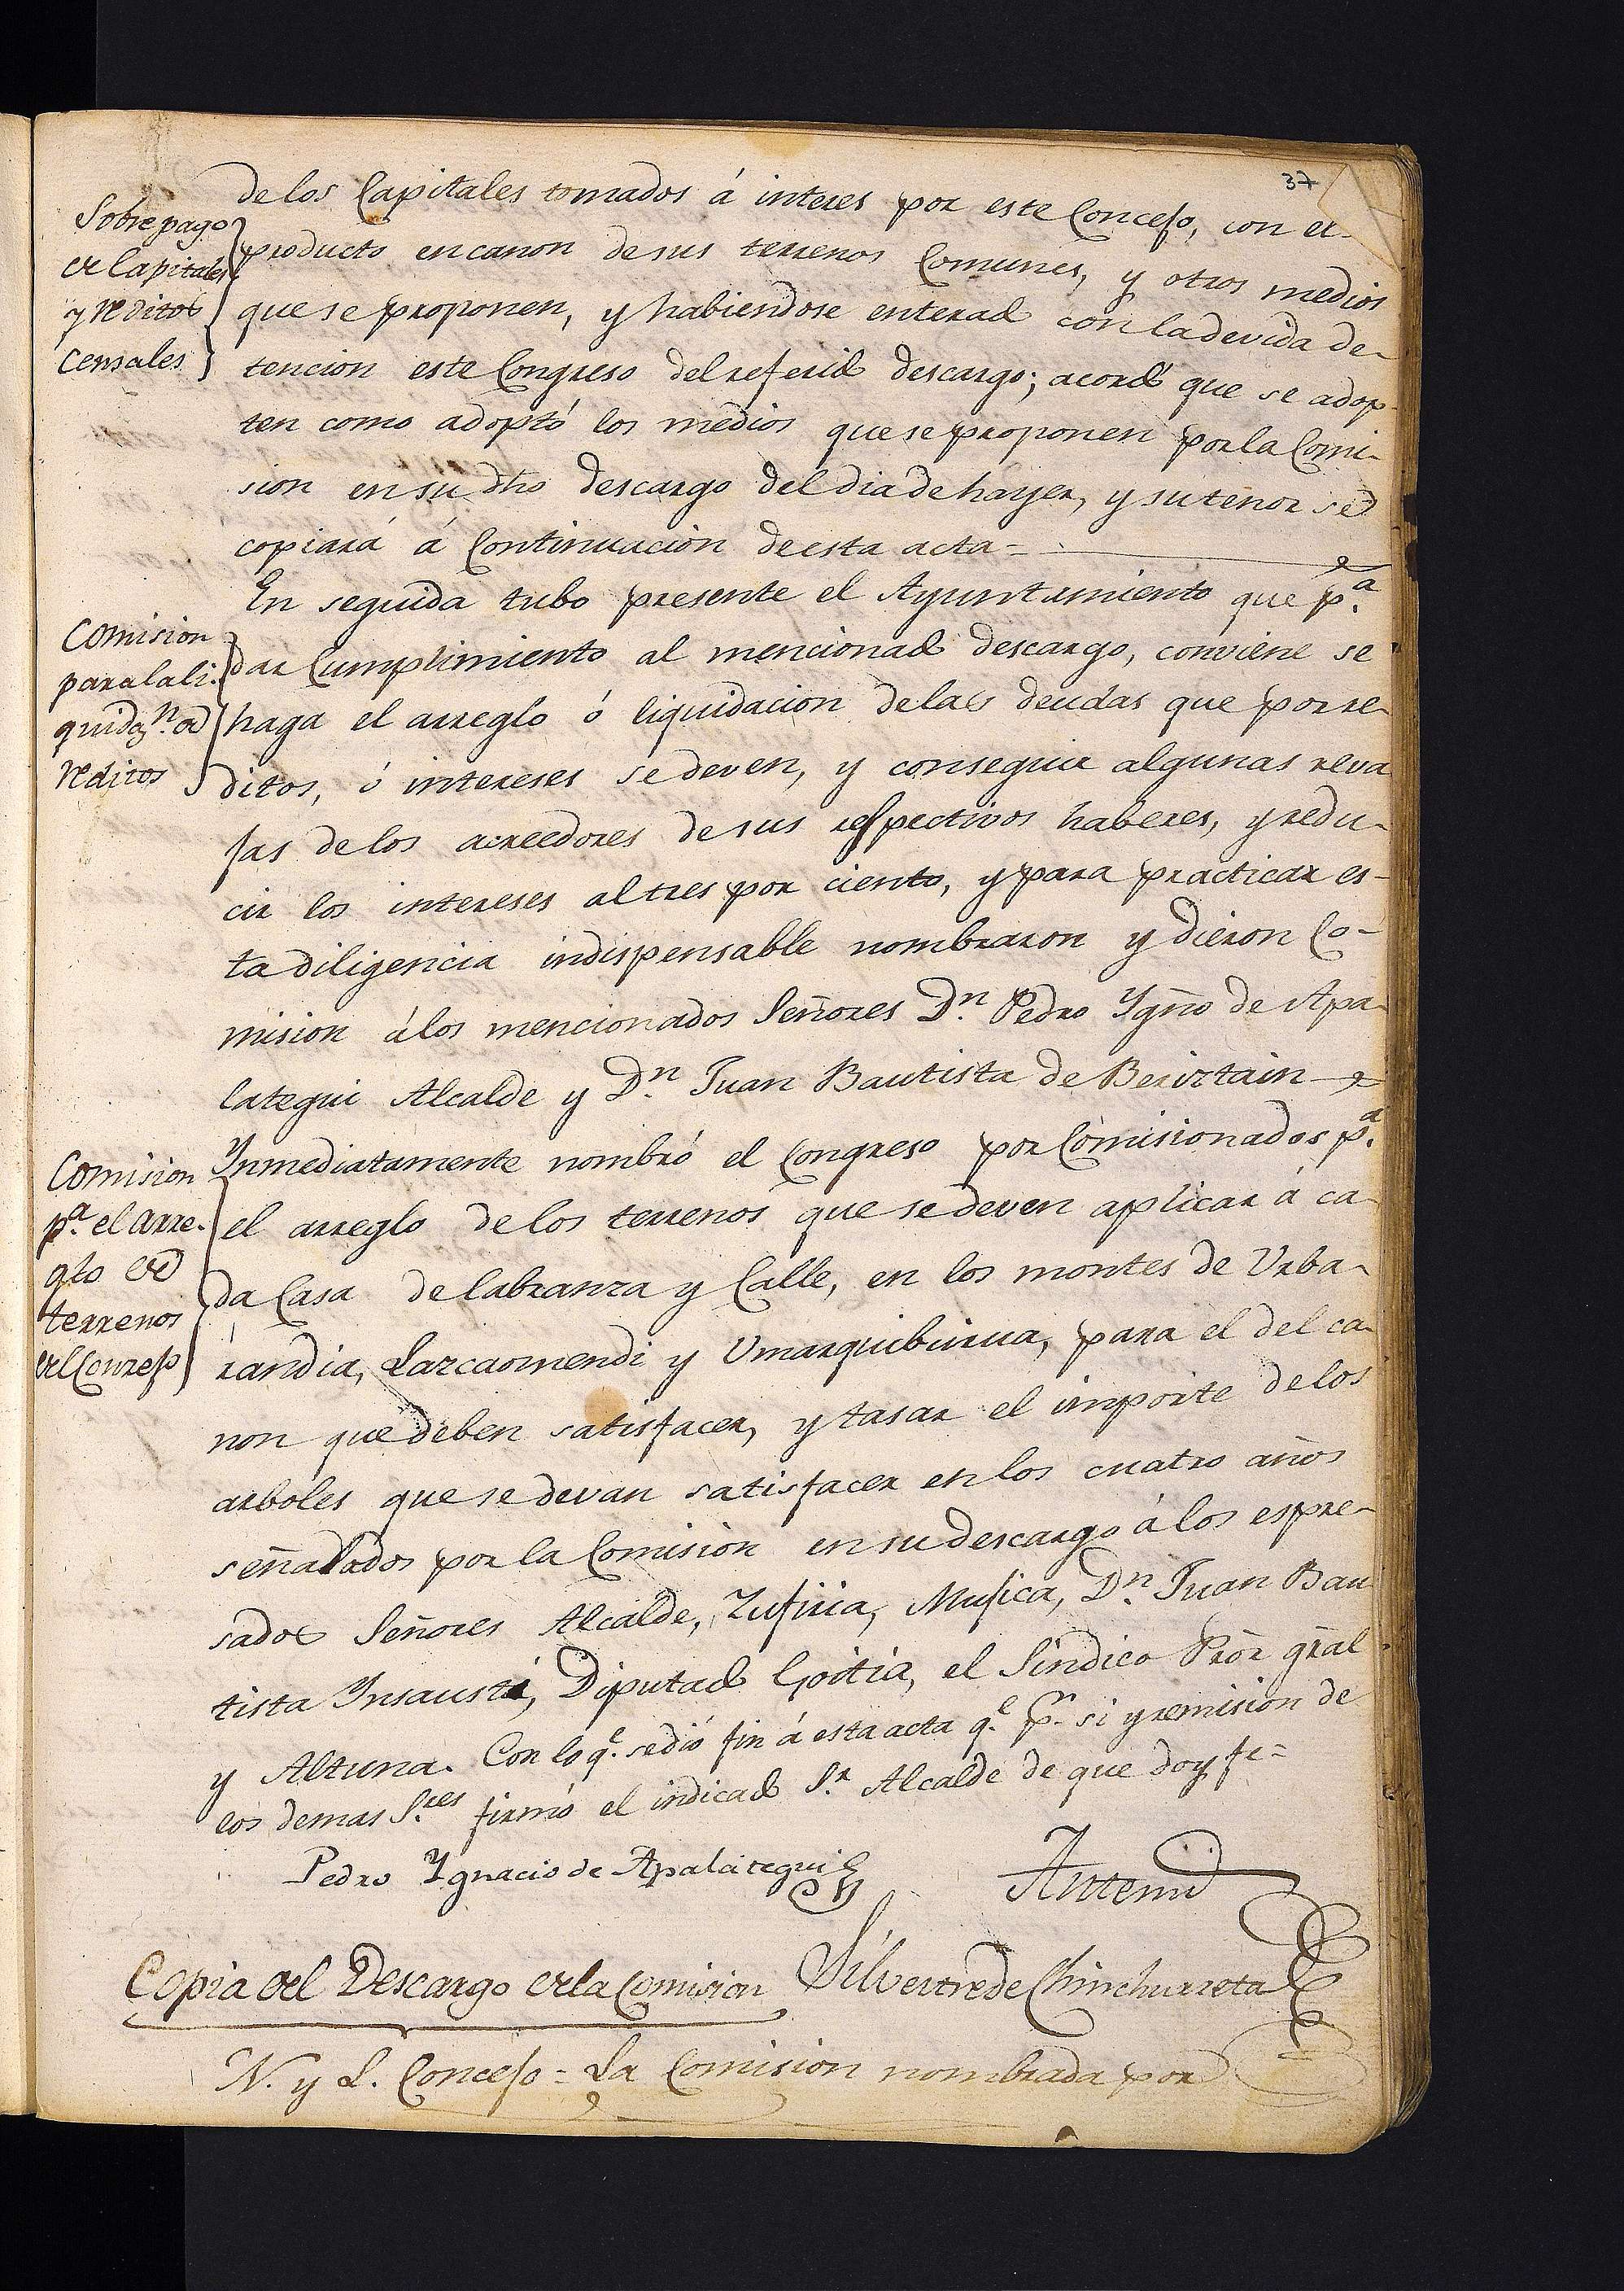 37
Sobre pago
de Capitales
y reditos
Censales
de los Capitales tomados á interes por este Concejo, con el
producto en canon de sus terrenos Comunes, y otros medios
que se proponen, y habiendose enterado con la devida de-
tencion este Congreso del referido descargo; acordó que se adop-
ten como adoptó los medios que se proponen por la Comi-
sion en su dho descargo del dia de hayer, y su tenor se
copiará á Continuacion de esta acta =
Comision
para la li-
quidaz.n de
reditos
En seguida tubo presente el Ayuntamiento que p.a
dar Cumplimiento al mencionado descargo, conviene se
haga el arreglo ó liquidacion de las deudas que por re-
ditos, ó intereses se deven, y conseguir algunas reva
jas de los acreedores de sus respectivos haberes, y redu-
cir los intereses al tres por ciento, y para practicar es-
ta diligencia indispensable nombraron y dieron Co-
mision á los mencionados Señores D.n Pedro Ygño de Apa-
lategui Alcalde y D.n Juan Bautista de Beiztain
Comision
p.a el arre-
glo de
terrenos
del Concejo
Ynmediatamente nombró el Congreso por Comisionados p.a
el arreglo de los terrenos que se deven aplicar á ca-
da Casa de labranza y Calle, en los montes de Urba-
randia, Larcaomendi y Umarquiburua, para el del ca-
non que deben satisfacer, y tasar el importe de los
arboles que se devan satisfacer en los cuatro años
señalados por la Comision en su descargo á los espre-
sados Señores Alcalde, Zufiria, Mujica, D.n Juan Bau
tista Insausti, Diputado Goitia, el Sindico Pror gral
y Altuna. Con lo q.e se dió fin á esta acta q.e p.r si y remision de
los demas S.res firmó el indicado S.r Alcalde de que doy fe =
Pedro Ygnacio de Apalategui
Antemi
Silvestre de Chinchurreta
Copia del Descargo de la Comision
N. y L. Concejo = La Comision nombrada por